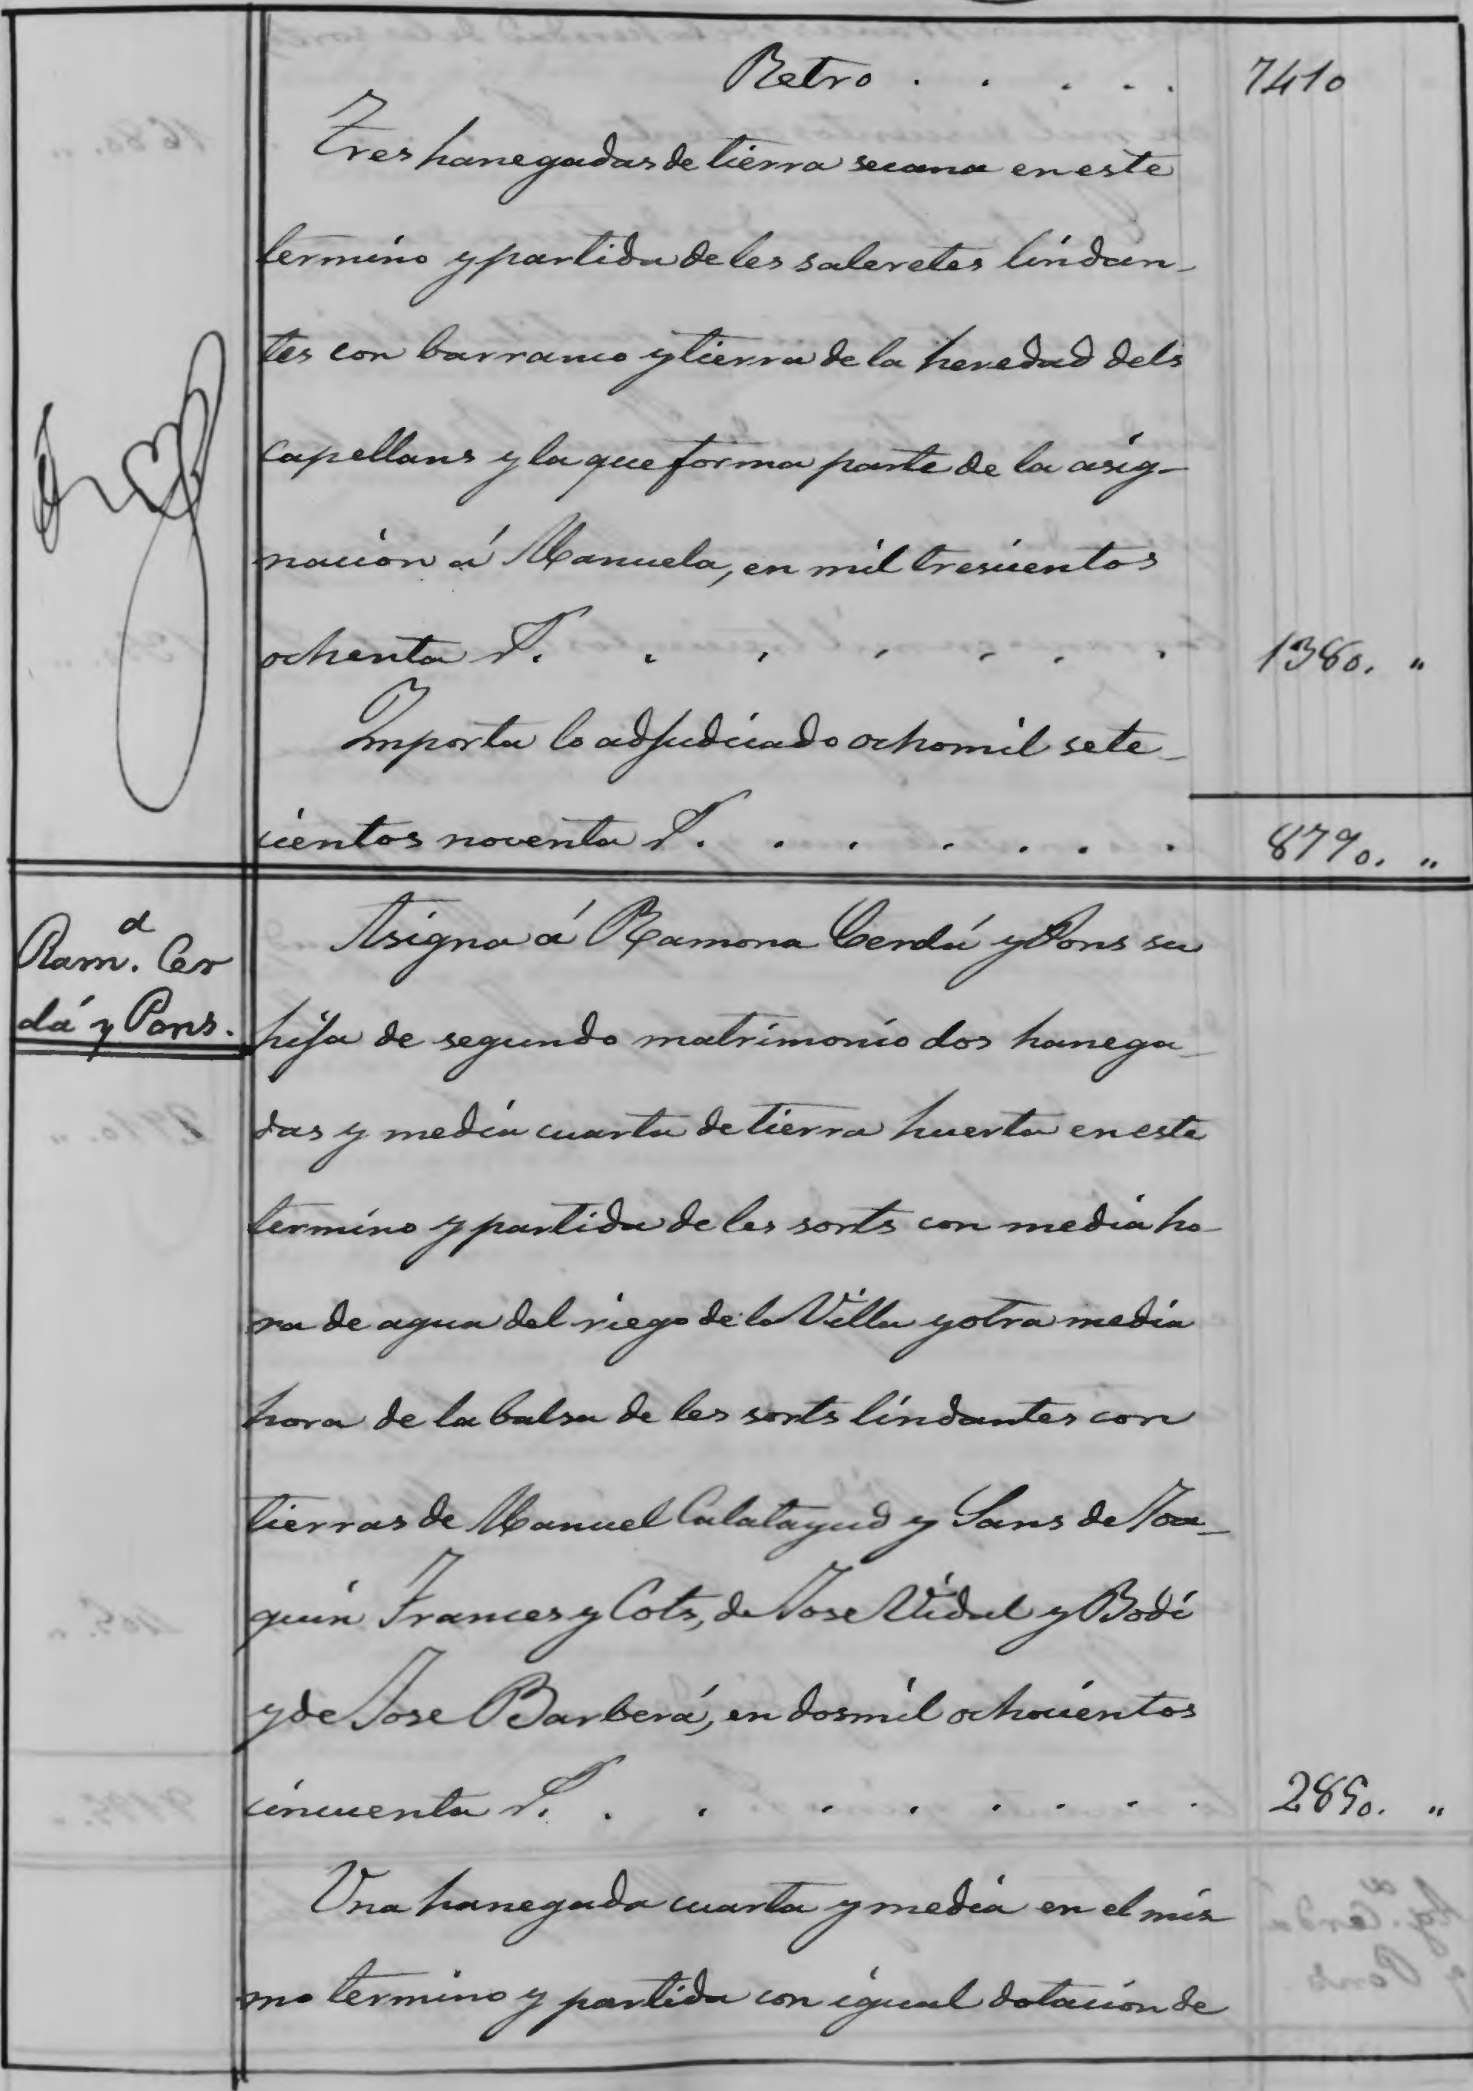 Retro . . . . . 7410
Tres hanegadas de tierra secana en este
termino y partida de les saleretes lindan-
tes con barranco y tierra de la heredad dels
capellans y la que forma parte de la asig-
nacion á Manuela, en mil trescientos
ochenta r. . . . . . . 1380. "
Importa lo adjudicado ocho mil sete-
cientos noventa r. . . . . . . 8790. "
Ram.ᵃ Cer
dá y Pons.
Asigna á Ramona Cerdá y Pons su
hija de segundo matrimonio dos hanega-
das y media cuarta de tierra huerta en este
termino y partida de les sorts con media ho-
ra de agua del riego de la Villa y otra media
hora de la balsa de les sorts lindantes con
tierras de Manuel Calatayud y Sans de Joa-
quin Frances y Cots, de Jose Vidal y Bodí
y de Jose Barberá, en dos mil ochocientos
cincuenta r. . . . . . . . . 2850. "
Una hanegada cuarta y media en el mis
mo termino y partida con igual dotacion de